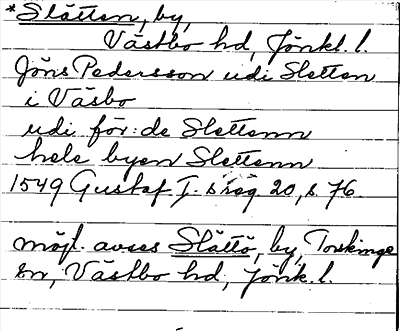 *Slätten, by,
Västbo hd, Jönk. l.
Jöns Pedersson udi Sletten
i Väsbo
udi för:de Slettenn
hele byen Slettenn
1549 Gustaf I. s reg. 20, s. 76.
möjl. avses Slättö, by, Torskinge
sn, Västbo hd, Jönk. l.